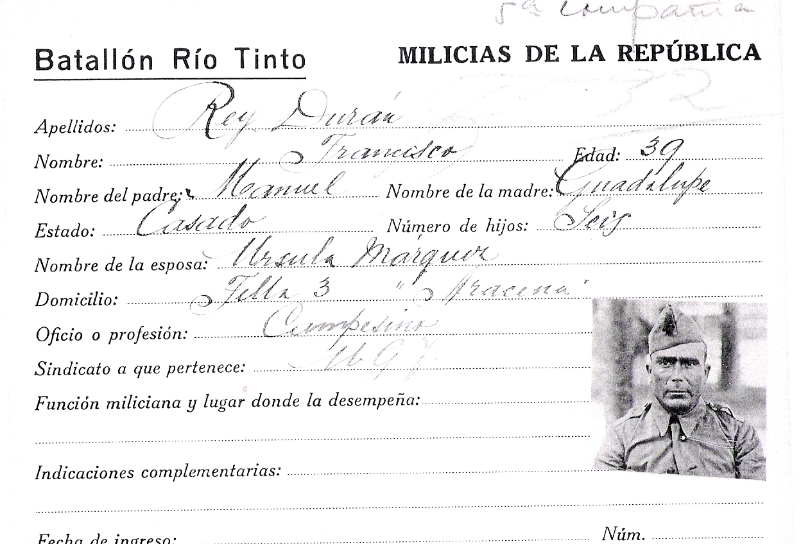 5ª compañia
Batallón Río Tinto MILICIAS DE LA REPÚBLICA
Apellidos: Rey Durán
Nombre: Francisco Edad: 39
Nombre del padre: Manuel Nombre de la madre: Guadalupe
Estado: Casado Número de hijos: Seis
Nombre de la esposa: Ursula Márquez
Domicilio: 3 " Aracena "
Oficio o profesión: Campesino
Sindicato a que pertenece: U G T.
Función miliciana y lugar donde la desempeña:
Indicaciones complementarias:
Fecha de ingreso: Núm.